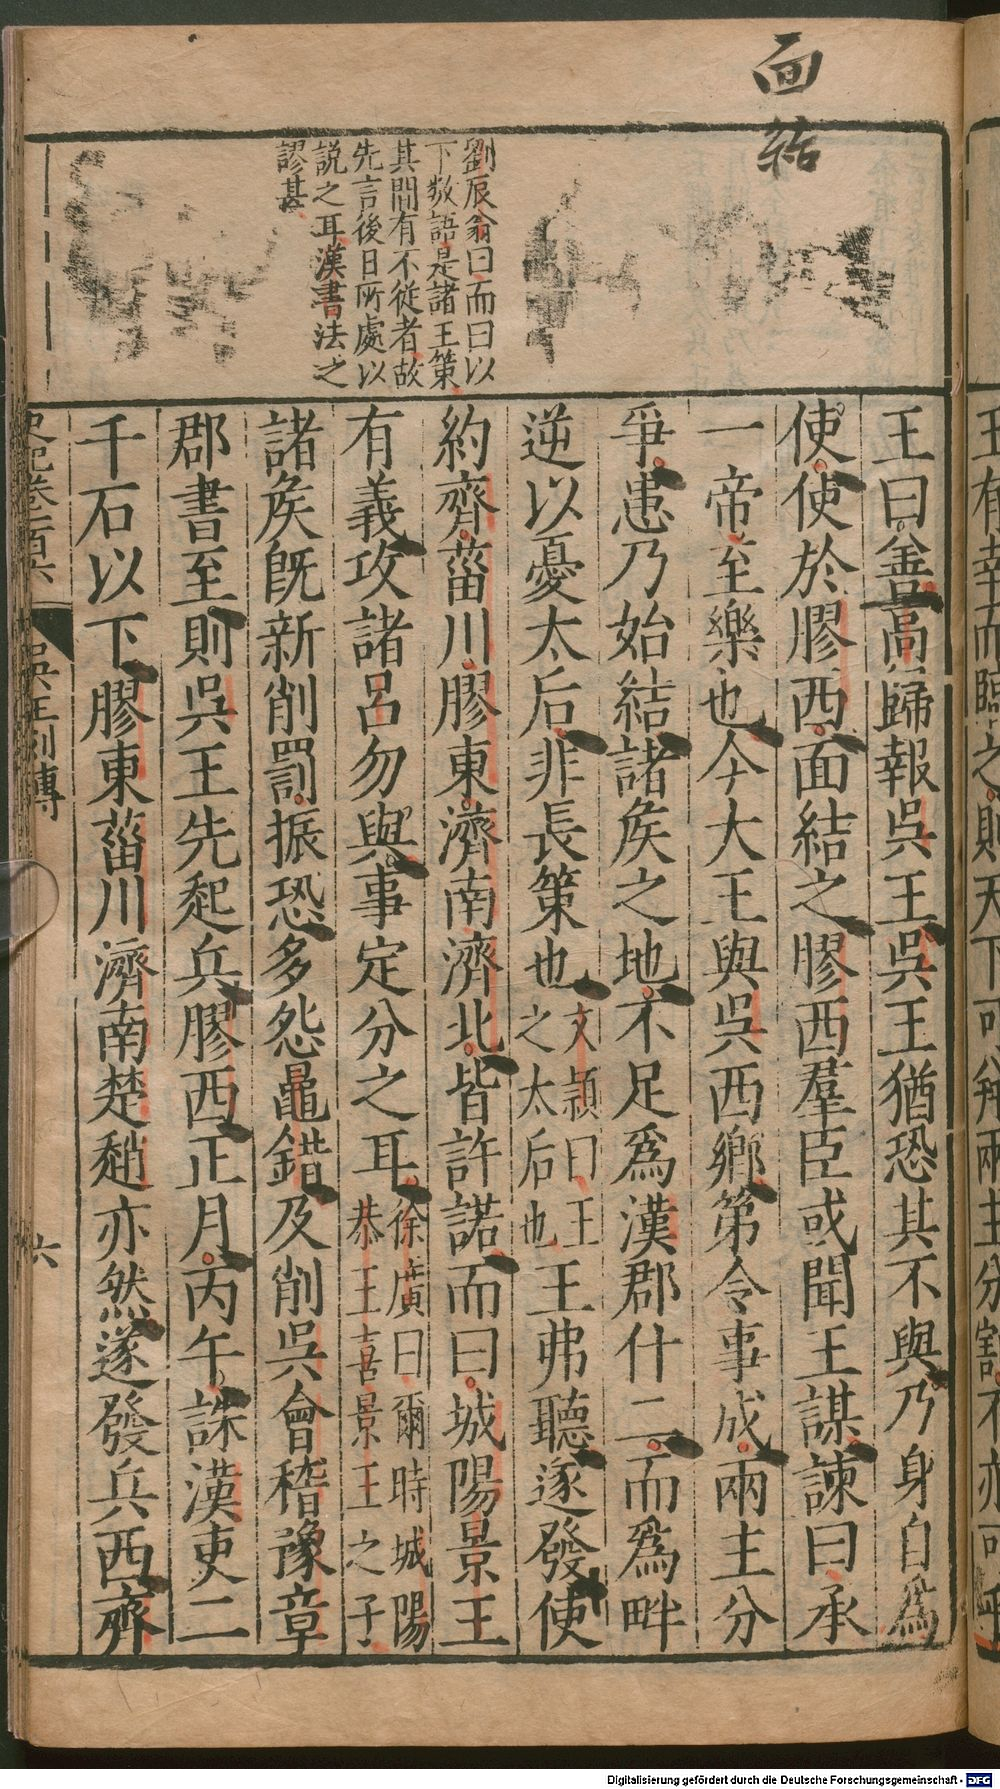 面結
劉辰翁曰而曰以
下数語是諸王策
其間有不從者故
先言後日所處以
説之耳漢書法之
謬甚
王曰善高歸報吳王吳王猶恐其不與乃身自爲
使使於膠西面結之膠西羣臣或聞王謀諫曰承
一帝至樂也今大王與吳西鄉第令事成兩主分
爭患乃始結諸矦之地不足爲漢郡什二而爲畔
逆以憂太后非長策也文頴曰王之太后也王弗聽遂發使
約齊菑川膠東濟南濟北皆許諾而曰城陽景王
有義攻諸呂勿與事定分之耳徐廣曰爾時城陽恭王喜景王之子
諸矦旣新削罰振恐多怨鼂錯及削吳會稽豫章
郡書至則吳王先起兵膠西正月丙午誅漢吏二
千石以下膠東菑川濟南楚趙亦然遂發兵西齊
史記卷一百六
吳王列傳
六
王有幸而臨之則天下可并兩主分割不亦可乎
Digitalisierung gefördert durch die Deutsche Forschungsgemeinschaft - DFG